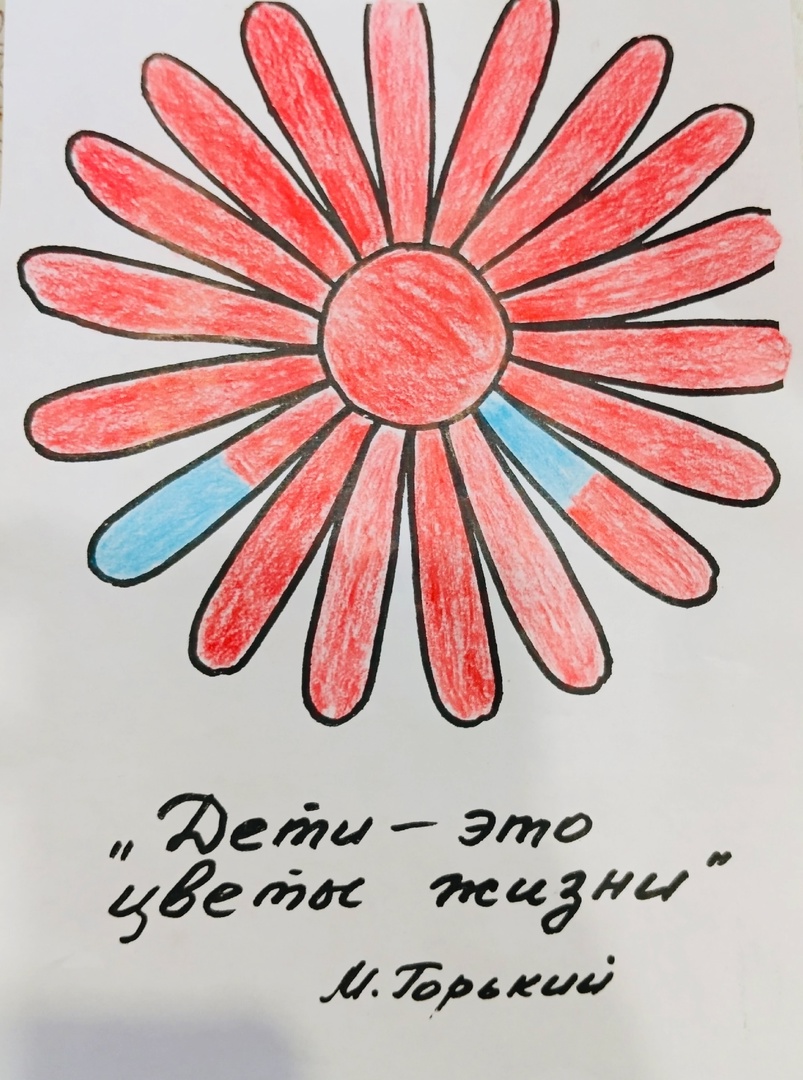 „Дети – это
цветы жизни"
М. Горький